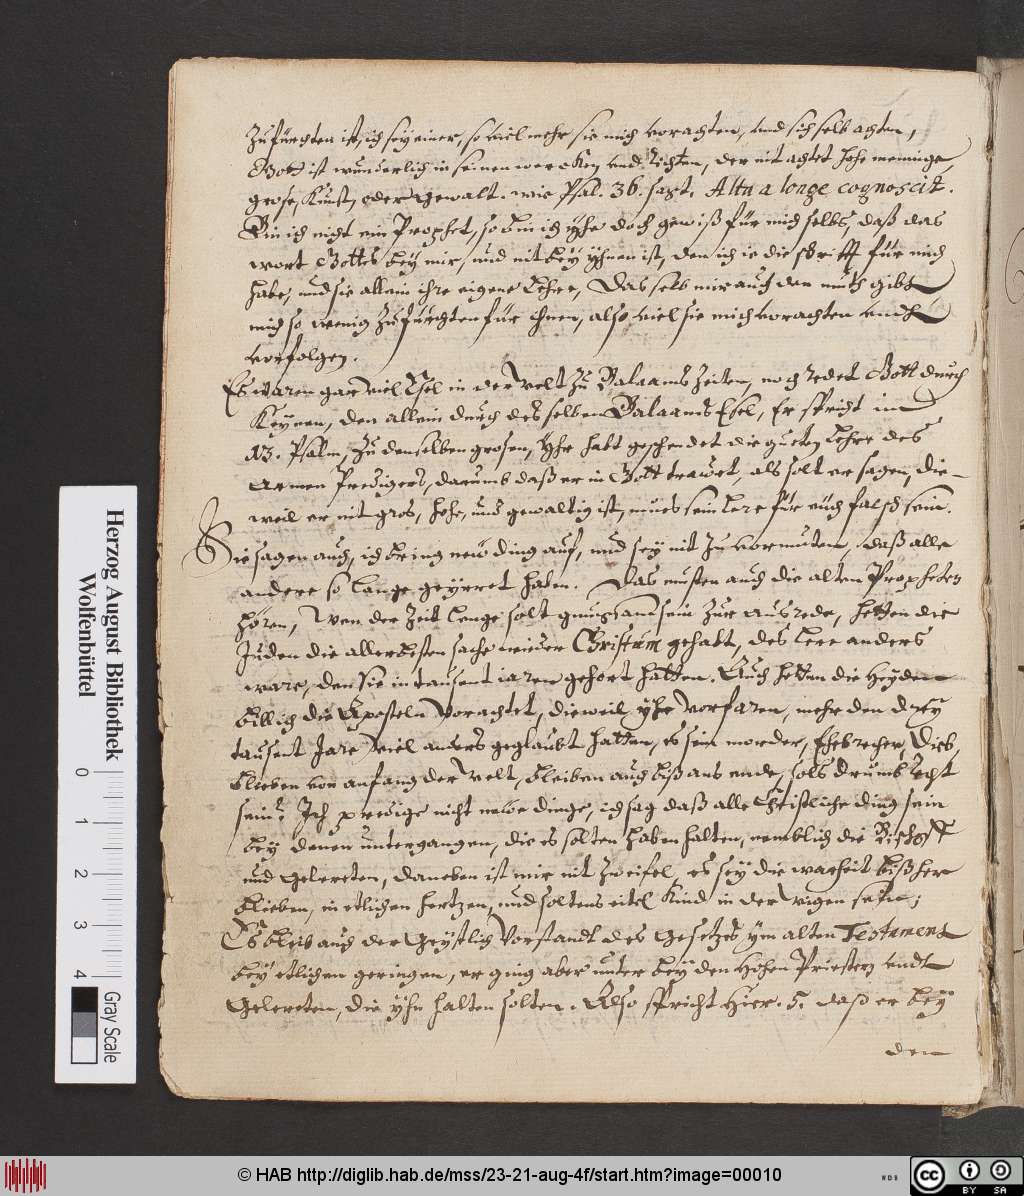 zufürchten ist, ich sey einer, so viel mehr sie mich vorachten, und sich selb achten,
Gott ist wunderlich in seinen wercken und richten, der nit achtet hohe mennige
grose, kunst, oder gewalt. wie Psal. 36. sagt, Alta a longe cognoscit.
Bin ich nicht ein Prophet, so bin ich yhe doch gewiß für mich selbs, daß das
wort Gottes bey mir, und nit bey yhnen ist, den ich ie die schrifft für mich
habe, und sie allein ihre eigene Lehre, Das selb mir auch den muth gibt
mich so wenig zufurchten für ihnen, also viel sie mich vorachten undt
vorfolgen.
Es waren gar viel Esel in der Welt zu Balaams Zeiten, noch redet Gott durch
keynen, den allein durch desselben Balaams Esel, Er spricht im
13. Psalm, zu denselben grosen, Yhr habt geschendet die guten Lehre des
Armen Predigers, darumb daß er in Gott trawet, als solt er sagen, die-
weil er nit gros, hohe, und gewaltig ist, mues sein Lere für euch falsch sein.
Sie sagen auch, ich bring new ding auf, und sey nit zu vormuten, daß alle
andere so lange geyrret haben. Das musten auch die alten Propheten
hören, Wen der Zeit lenge solt gnugsam sein zur ausrede, hetten die
Juden die allerbesten sache wieder Christum gehabt, des lere anders
ware, den sie in tausent iaren gehort hatten. Auch hetten die Heyden
billich die Aposteln vorachtet, dieweil yhr Vorfaren, mehr den drey
tausent Jare viel anders geglaubt hatten, es sein morder, Ehebrecher, Dieb,
blieben von anfang der Welt, bleiben auch biß ans ende, sols drumb recht
sein? Ich predige nicht newe dinge, ich sag daß alle Christliche ding sein
bey denen untergangen, die es solten haben halten, nemblich die Bischoff
und Gelereten, daneben ist mir nit zweifel, es sey die warheit bißher
blieben, in etlichen hertzen, und soltens eitel Kind in der wigen sein;
Es bleib auch der Geystlich Vorstandt des Gesetzes ym alten Testament
bey etlichen geringen, er ging aber unter bey den Hohen Priestern undt
Gelereten, die yhn halten solten. Also spricht Hier. 5. daß er bey
den
Herzog August Bibliothek
Wolfenbüttel
0 1 2 3 4
Gray Scale
© HAB http://diglib.hab.de/mss/23-21-aug-4f/start.htm?image=00010
WDB
cc BY SA